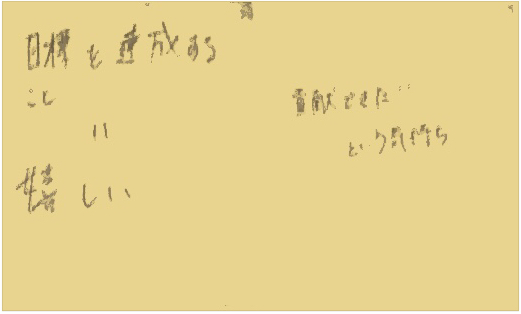 目標を達成する
こと
=
嬉しい
貢献できた
という気持ち